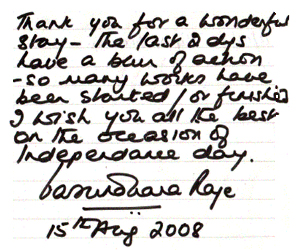 Thank you for a wonderful
stay - The last 2 dys
have a blur of action
- so many works have
been started / or finished
I wish you all the best
on the occasion of
Independance day.
Vasundhara Raje
15th Aug 2008